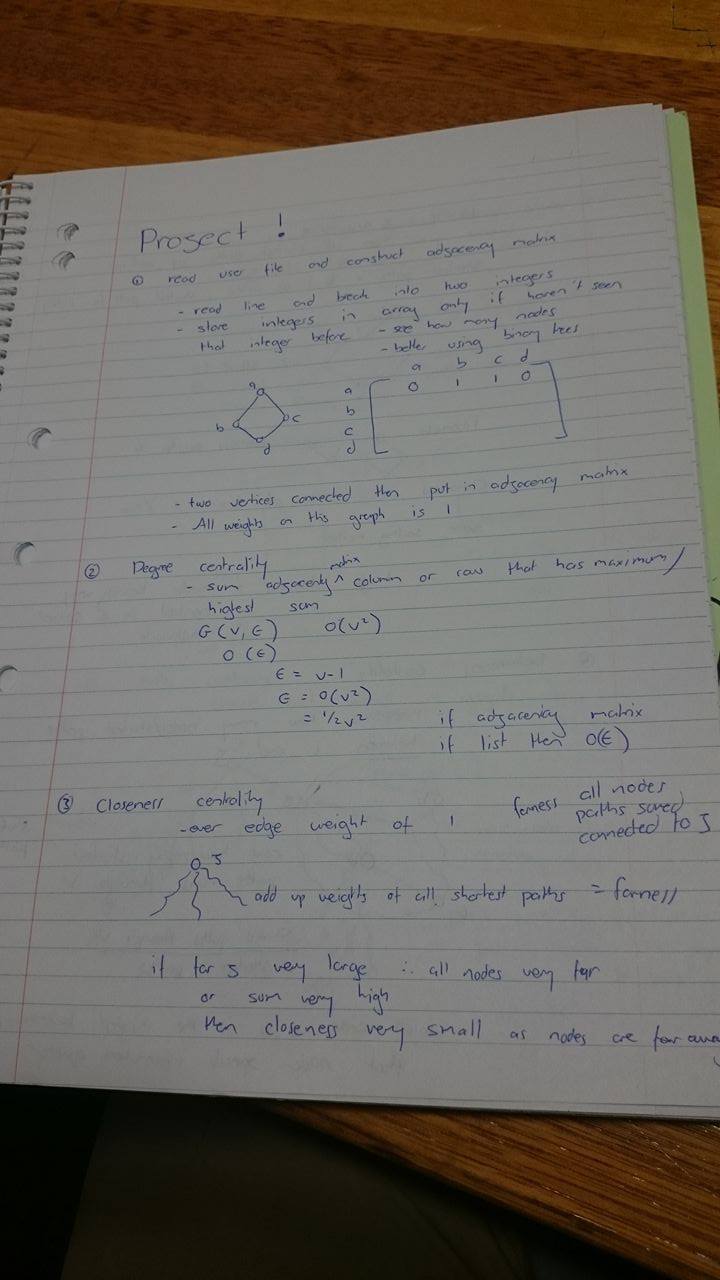 Project !
① read user file and construct adjacency matrix
- read line and break into two integers
- store integers in array only if haven't seen
that integer before - see how many nodes
- better using binary trees
a b c d
a 0 1 1 0
b
c
d
a
b c
d
- two vertices connected then put in adjacency matrix
- All weights on this graph is 1
② Degree centrality
- sum adjacency ^ matrix column or row that has maximum/
highest sum
G(V, E) O(V²)
O(E)
E = V-1
E = O(V²)
= 1/2V² if adjacency matrix
if list then O(E)
③ Closeness centrality
-over edge weight of 1
farness all nodes
paths
connected to J
J
add up weights of all shortest paths = farness
if far J very large ∴ all nodes very far
or sum very high
then closeness very small as nodes are far